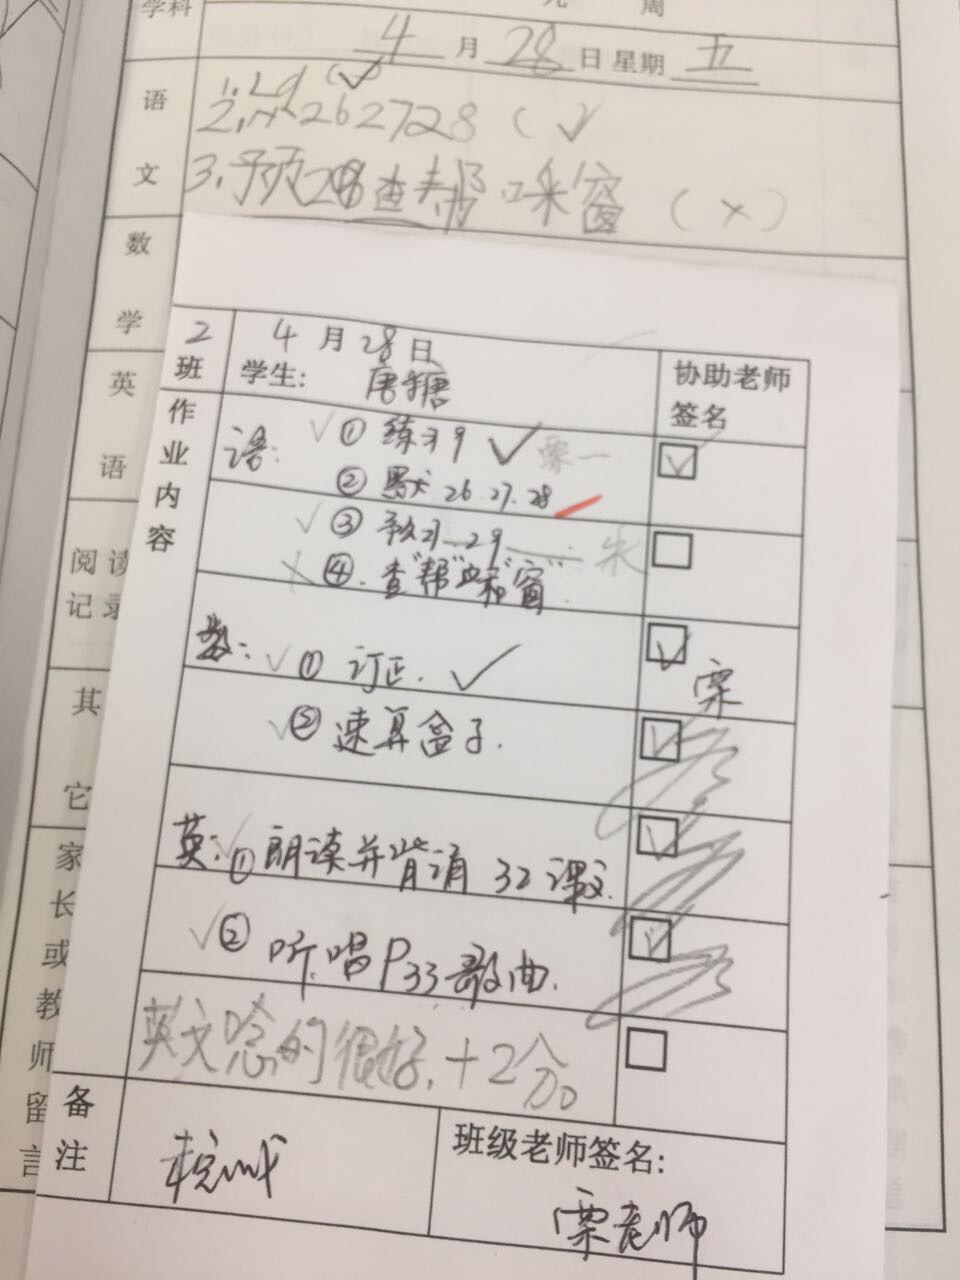 学科 周
4月28日星期五
语文
2.默262728（✓
3.预28查帮咪窗（×）
数学
英语
阅读记录
其它
家长或教师留言
2班 4月28日
学生: 唐糖
协助老师签名
作业内容
语: ✓① 练习9 ✓
② 默写 26.27.28
✓③ 预习 29
④. 查"帮""咪""窗".
数: ✓① 订正. ✓
栗
✓② 速算盒子.
英: ① 朗读并背诵 32 课文.
✓② 听.唱P33歌曲.
英文念的很好,+2分。
备注
班级老师签名:
栗老师